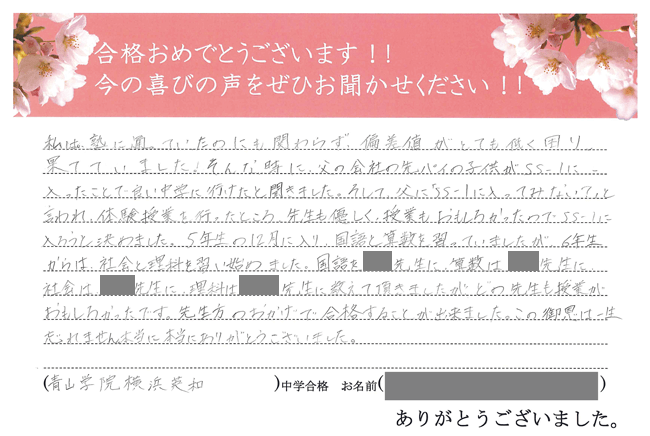 合格おめでとうございます！！
今の喜びの声をぜひお聞かせください！！
私は、塾に通っていたのにも関わらず、偏差値がとても低く困り
果てていました！そんな時に、父の会社の先パイの子供がSS-1に
入ったことで良い中学に行けたと聞きました。そして、父に「SS-1に入ってみないで」と
言われ、体験授業を行ったところ、先生も優しく、授業もおもしろかったのでSS-1に
入ろうと決めました。5年生の12月に入り、国語と算数を習っていましたが、6年生
からは、社会と理科を習い始めました。国語を 先生に、算数は 先生に
社会は 先生に、理科は 先生に教えて頂きましたがどの先生も授業が
おもしろかったです。先生方のおかげで合格することが出来ました。この御恩は一生
忘れません本当に本当にありがとうございました。
(青山学院横浜英和)中学合格 お名前( )
ありがとうございました。